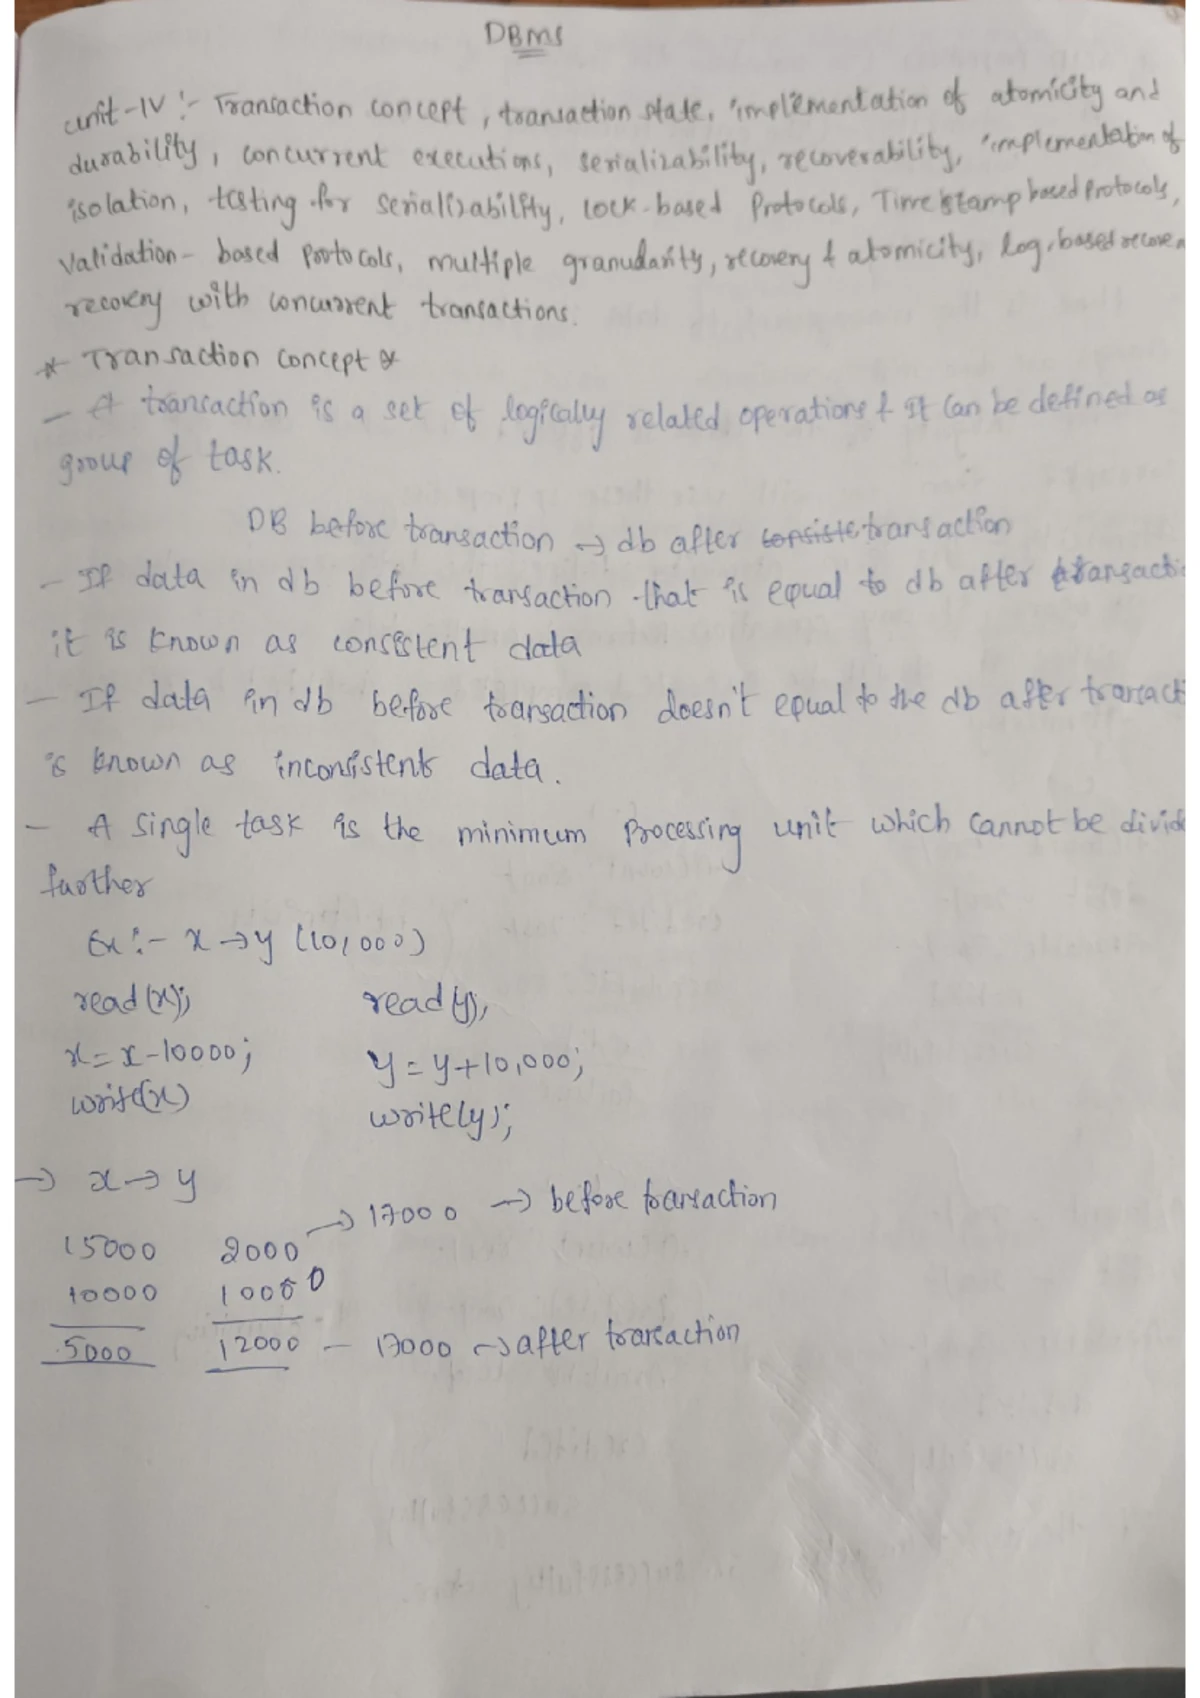 DBMS
unit-IV :- Transaction concept, transaction state, implementation of atomicity and
durability, concurrent executions, serializability, recoverability, implementation of
isolation, testing for serializability, lock-based Protocols, Time stamp based Protocols,
Validation- based Protocols, multiple granularity, recovery & atomicity, log-based recove
recovery with concurrent transactions.
* Transaction concept *
- A transaction is a set of logically related operations & it can be defined as
group of task.
DB before transaction → db after consiste transaction
- If data in db before transaction that is equal to db after transacti
it is known as consistent data
- If data in db before transaction doesn't equal to the db after transact
is known as inconsistent data.
- A single task is the minimum Processing unit which cannot be divid
further
Ex :- x → y (10,000)
read(x); read(y);
x = x-10000; y = y+10,000;
write(x) write(y);
→ x → y
→ 17000 → before transaction
15000 2000
10000 10000
5000 12000 - 17000 → after transaction